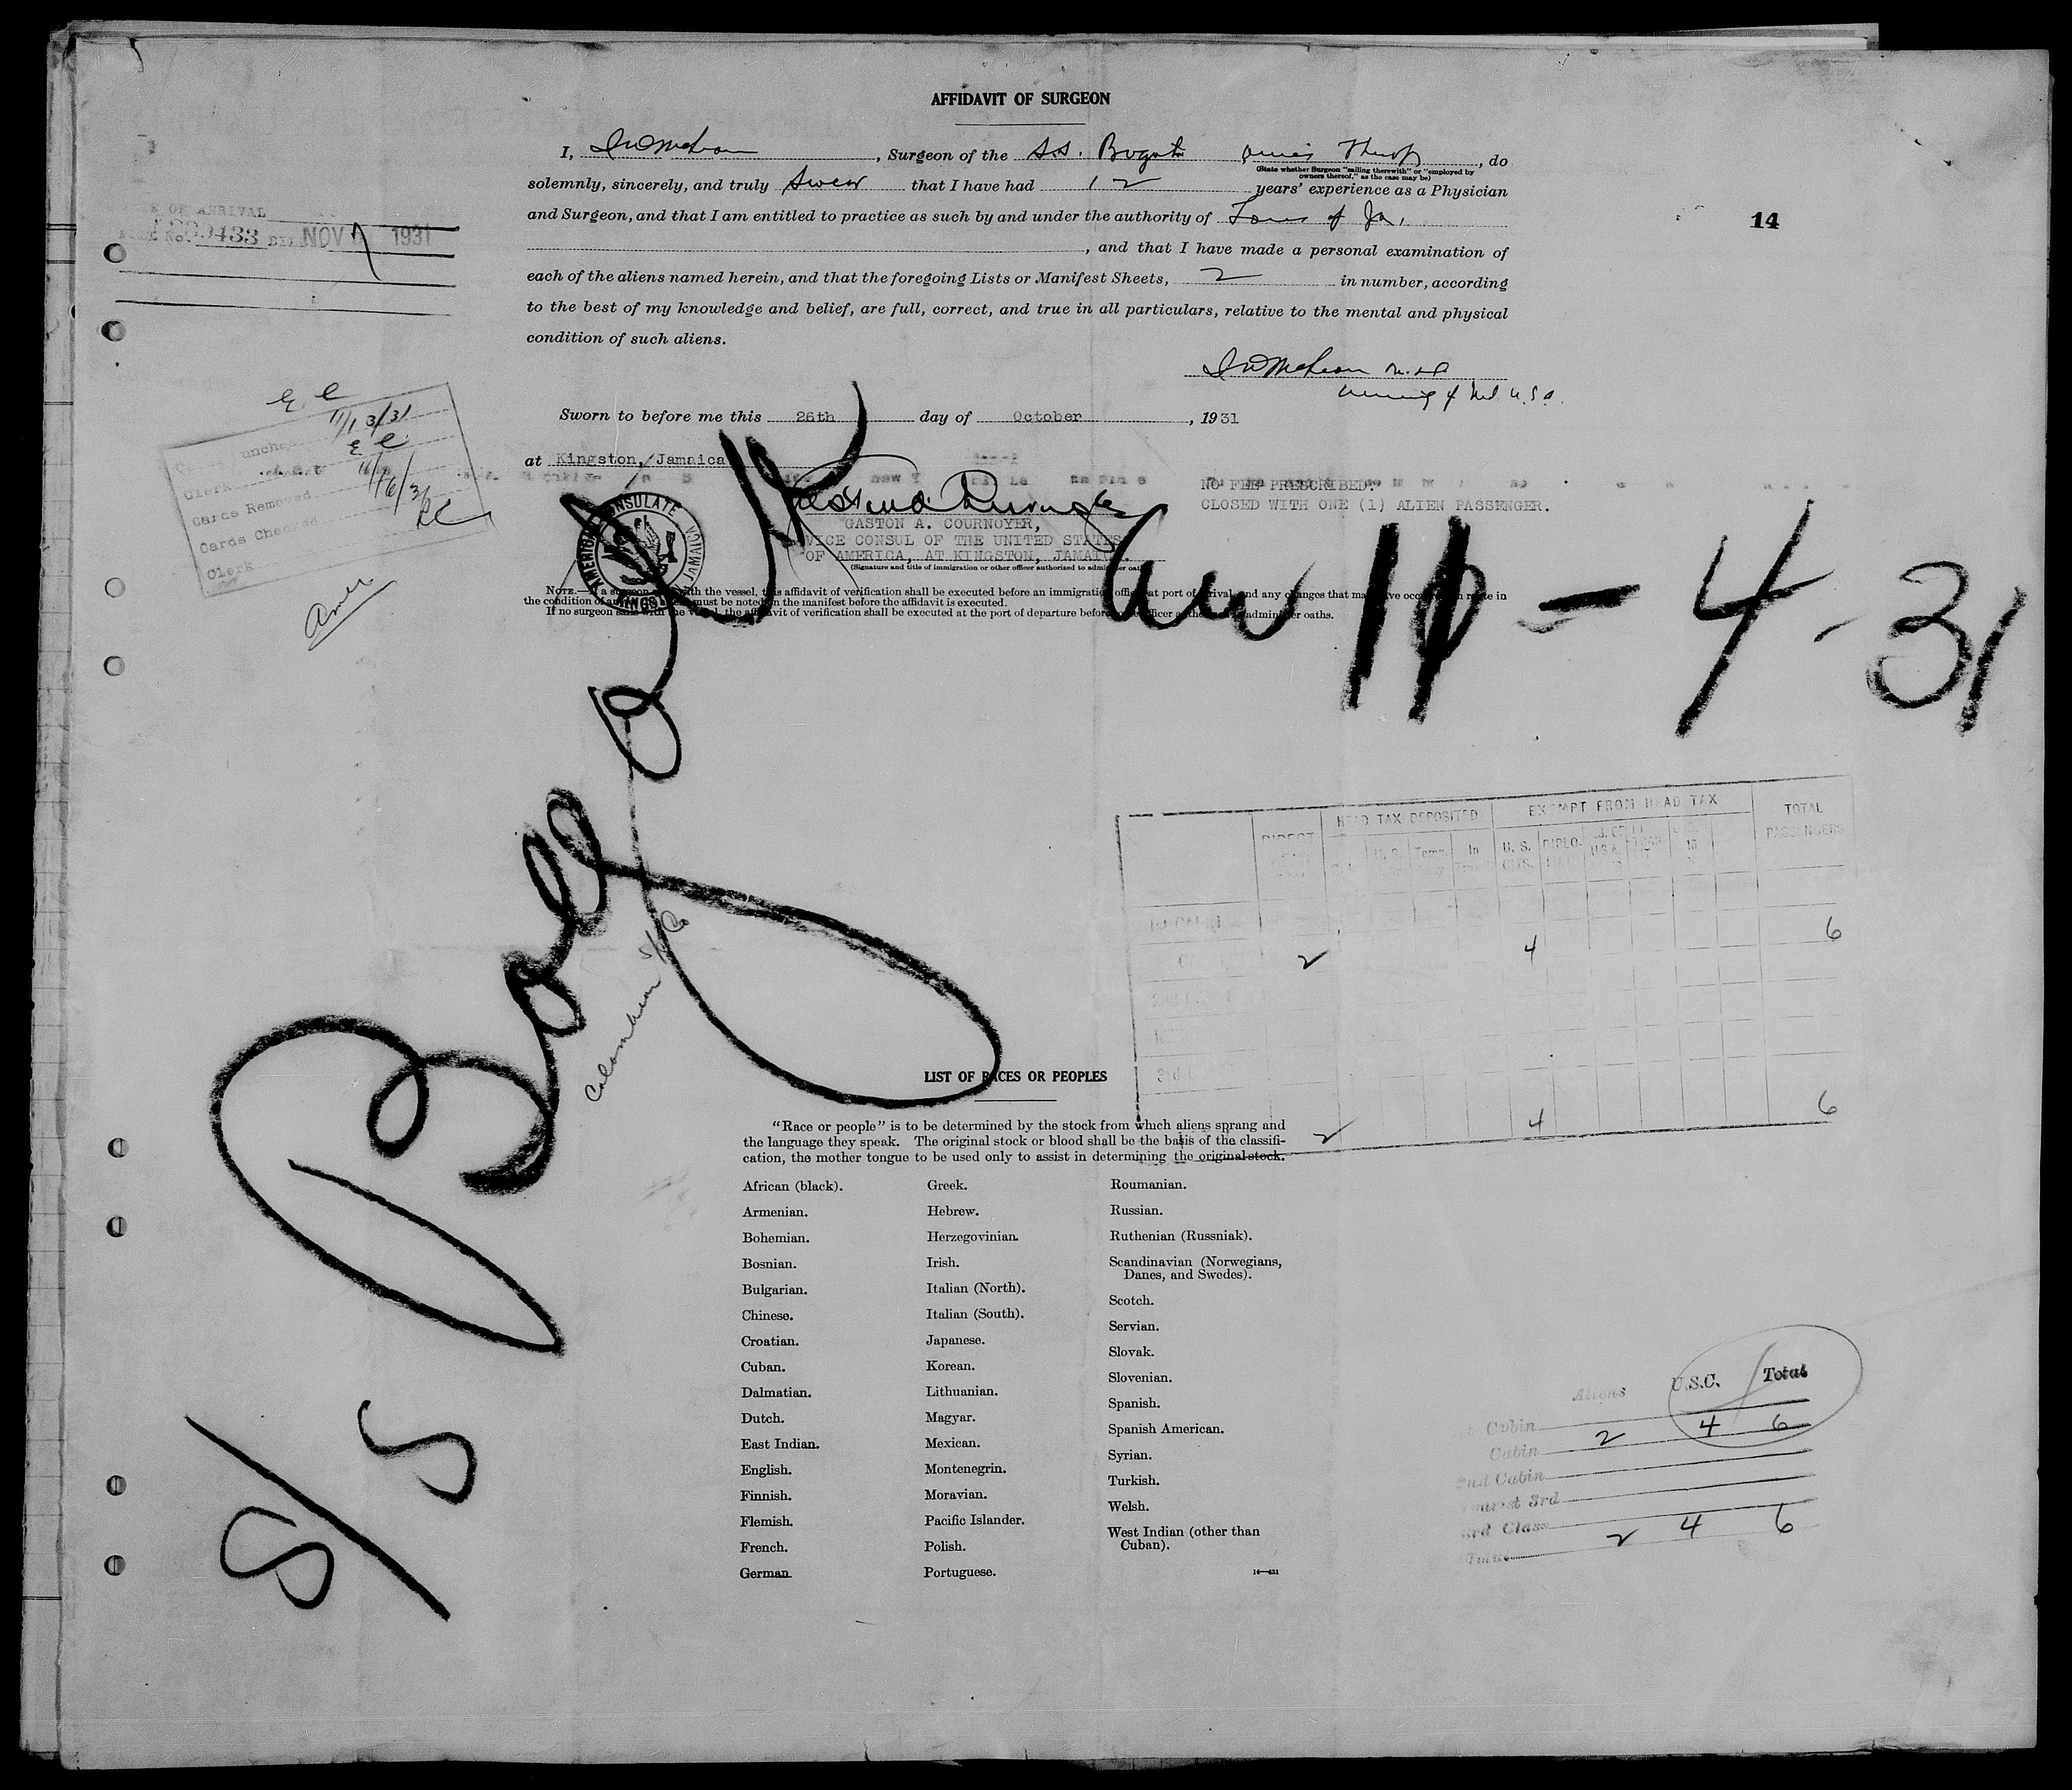 AFFIDAVIT OF SURGEON
I, , Surgeon of the S.S. Bogota owners thereof, do
(State whether Surgeon "sailing therewith" or "employed by
owners thereof," as the case may be)
solemnly, sincerely, and truly swear that I have had 12 years' experience as a Physician
and Surgeon, and that I am entitled to practice as such by and under the authority of Laws of Ja.
, and that I have made a personal examination of
each of the aliens named herein, and that the foregoing Lists or Manifest Sheets, 2 in number, according
to the best of my knowledge and belief, are full, correct, and true in all particulars, relative to the mental and physical
condition of such aliens.
14
OF ARRIVAL
NOV 1931
Sworn to before me this 26th day of October, 1931
at Kingston, Jamaica
E C
11/13/31
E C
Clerk
Cards Removed
Cards Checked
Clerk
AMERICAN CONSULATE
KINGSTON JAMAICA
GASTON A. COURNOYER,
VICE CONSUL OF THE UNITED STATES
OF AMERICA, AT KINGSTON, JAMAICA.
(Signature and title of immigration or other officer authorized to administer oaths)
NO FEE PRESCRIBED.
CLOSED WITH ONE (1) ALIEN PASSENGER.
NOTE.—If a surgeon sails with the vessel, this affidavit of verification shall be executed before an immigration officer at port of arrival, and any changes that may have occurred en route in
the condition of any must be noted on the manifest before the affidavit is executed.
If no surgeon sails with the vessel, the affidavit of verification shall be executed at the port of departure before some officer authorized to administer oaths.
S/S Bogota
Arr 11 - 4 - 31
Colombian S/S Co
HEAD TAX DEPOSITED
EXEMPT FROM HEAD TAX
TOTAL
PASSENGERS
DIRECT
U. S. Temp. In
U. S. CITS.
DIPLO-
2 4 6
2 4 6
LIST OF RACES OR PEOPLES
"Race or people" is to be determined by the stock from which aliens sprang and
the language they speak. The original stock or blood shall be the basis of the classifi-
cation, the mother tongue to be used only to assist in determining the original stock.
African (black).
Armenian.
Bohemian.
Bosnian.
Bulgarian.
Chinese.
Croatian.
Cuban.
Dalmatian.
Dutch.
East Indian.
English.
Finnish.
Flemish.
French.
German.
Greek.
Hebrew.
Herzegovinian.
Irish.
Italian (North).
Italian (South).
Japanese.
Korean.
Lithuanian.
Magyar.
Mexican.
Montenegrin.
Moravian.
Pacific Islander.
Polish.
Portuguese.
Roumanian.
Russian.
Ruthenian (Russniak).
Scandinavian (Norwegians,
Danes, and Swedes).
Scotch.
Servian.
Slovak.
Slovenian.
Spanish.
Spanish American.
Syrian.
Turkish.
Welsh.
West Indian (other than
Cuban).
14—431
Aliens U.S.C. Total
Cabin
Cabin 2 4 6
2nd Cabin
Tourist 3rd
3rd Class
Total 2 4 6